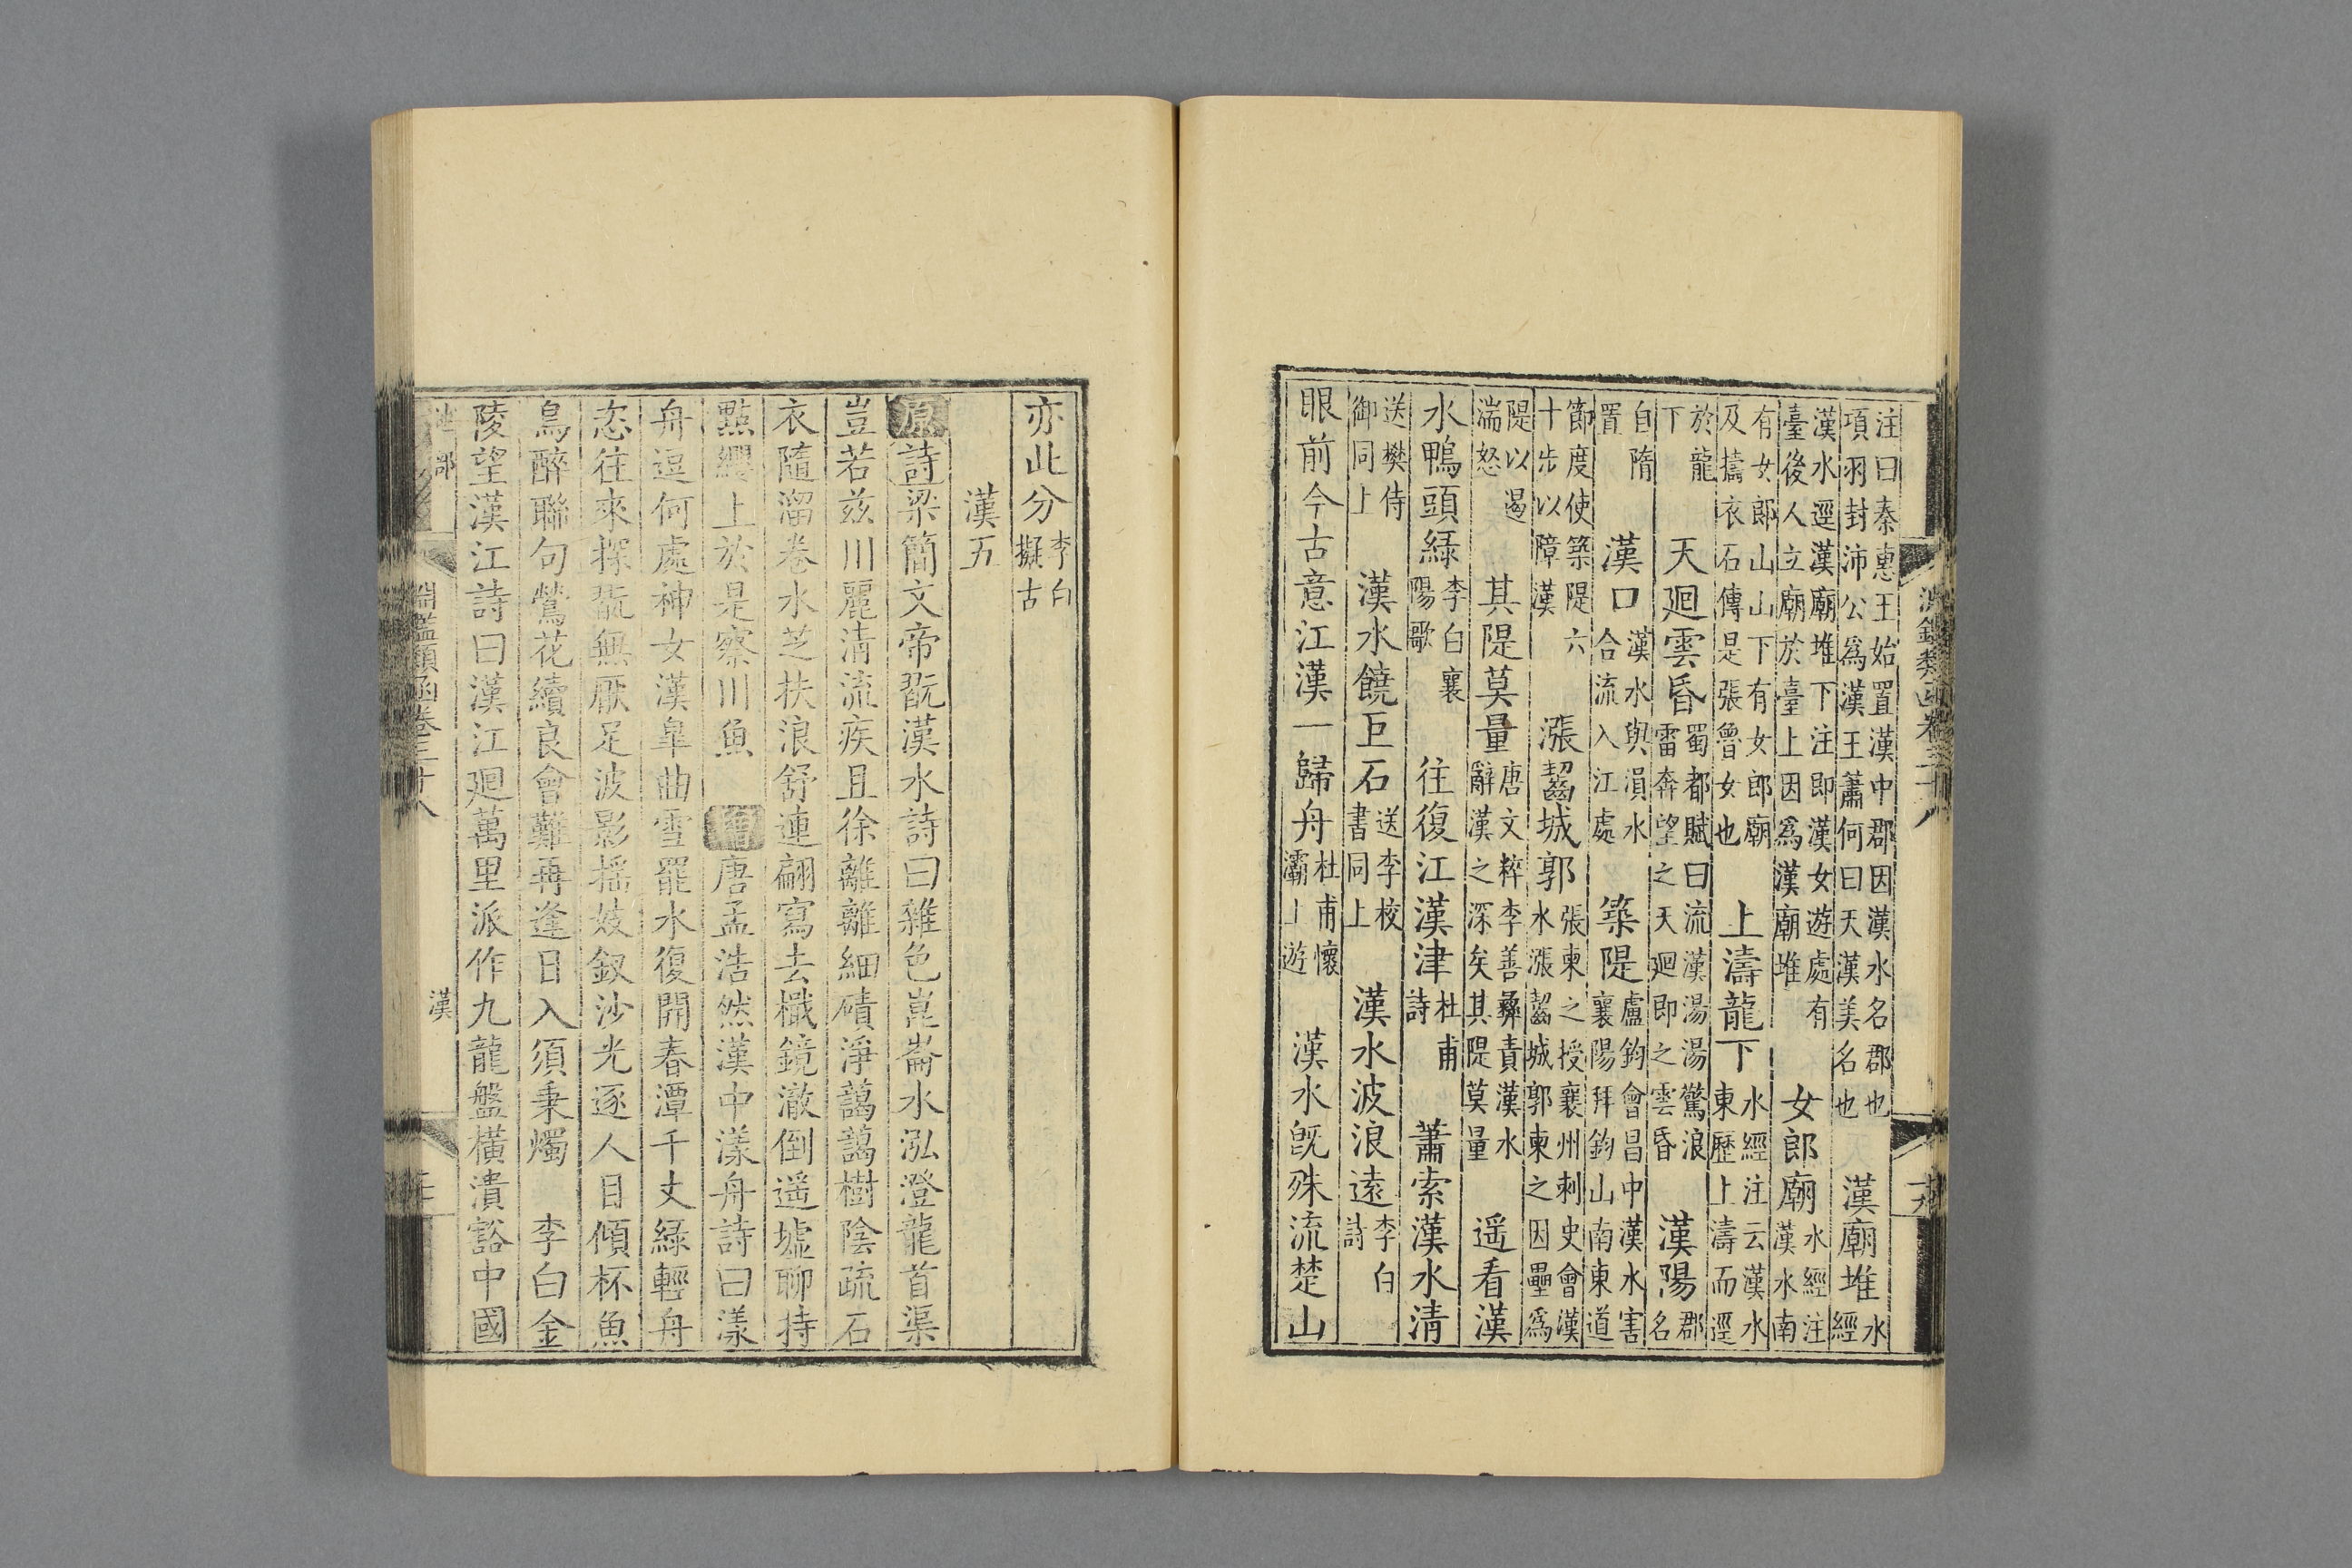 淵鑑類函卷三十八
注曰秦惠王始置漢中郡因漢水名郡也項羽封沛公爲漢王蕭何曰天漢美名也 漢廟堆水經
漢水逕漢廟堆下注即漢女遊處有臺後人立廟於臺上因爲漢廟堆 女郎廟水經注漢水南
有女郎山山下有女郎廟及擣衣石傳是張魯女也 上濤龍下水經注云漢水東歷上濤而逕
於龍下 天廻雲昏蜀都賦曰流漢湯湯驚浪雷奔望之天廻即之雲昏 漢陽郡名
自隋置 漢口漢水與溳水合流入江處 築隄盧鈞會昌中漢水害襄陽拜鈞山南東道
節度使築隄六十步以障漢 漲齧城郭張柬之授襄州刺史會漢水漲齧城郭柬之因壘爲
隄以遏湍怒 其隄莫量唐文粹李善彝責漢水辭漢之深矣其隄莫量 遥看漢
水鴨頭緑李白襄陽歌 往復江漢津杜甫詩 蕭索漢水清
送樊侍御同上 漢水饒巨石送李校書同上 漢水波浪遠李白詩
眼前今古意江漢一歸舟杜甫懷灞上遊 漢水旣殊流楚山
亦此分李白擬古
漢五
原詩梁簡文帝翫漢水詩曰雜色崑崙水泓澄龍首渠
豈若兹川麗清流疾且徐離離細磧淨藹藹樹陰疏石
衣隨溜卷水芝扶浪舒連翩寫去檝鏡澈倒遥墟聊持
點纓上於是察川魚 增唐孟浩然漢中漾舟詩曰漾
舟逗何處神女漢臯曲雪罷水復開春潭千丈緑輕舟
恣往來探翫無厭足波影揺妓釵沙光逐人目傾杯魚
鳥醉聯句鶯花續良會難再逢日入須秉燭 李白金
陵望漢江詩曰漢江廻萬里派作九龍盤橫潰豁中國
淵鑑類函卷三十八 漢